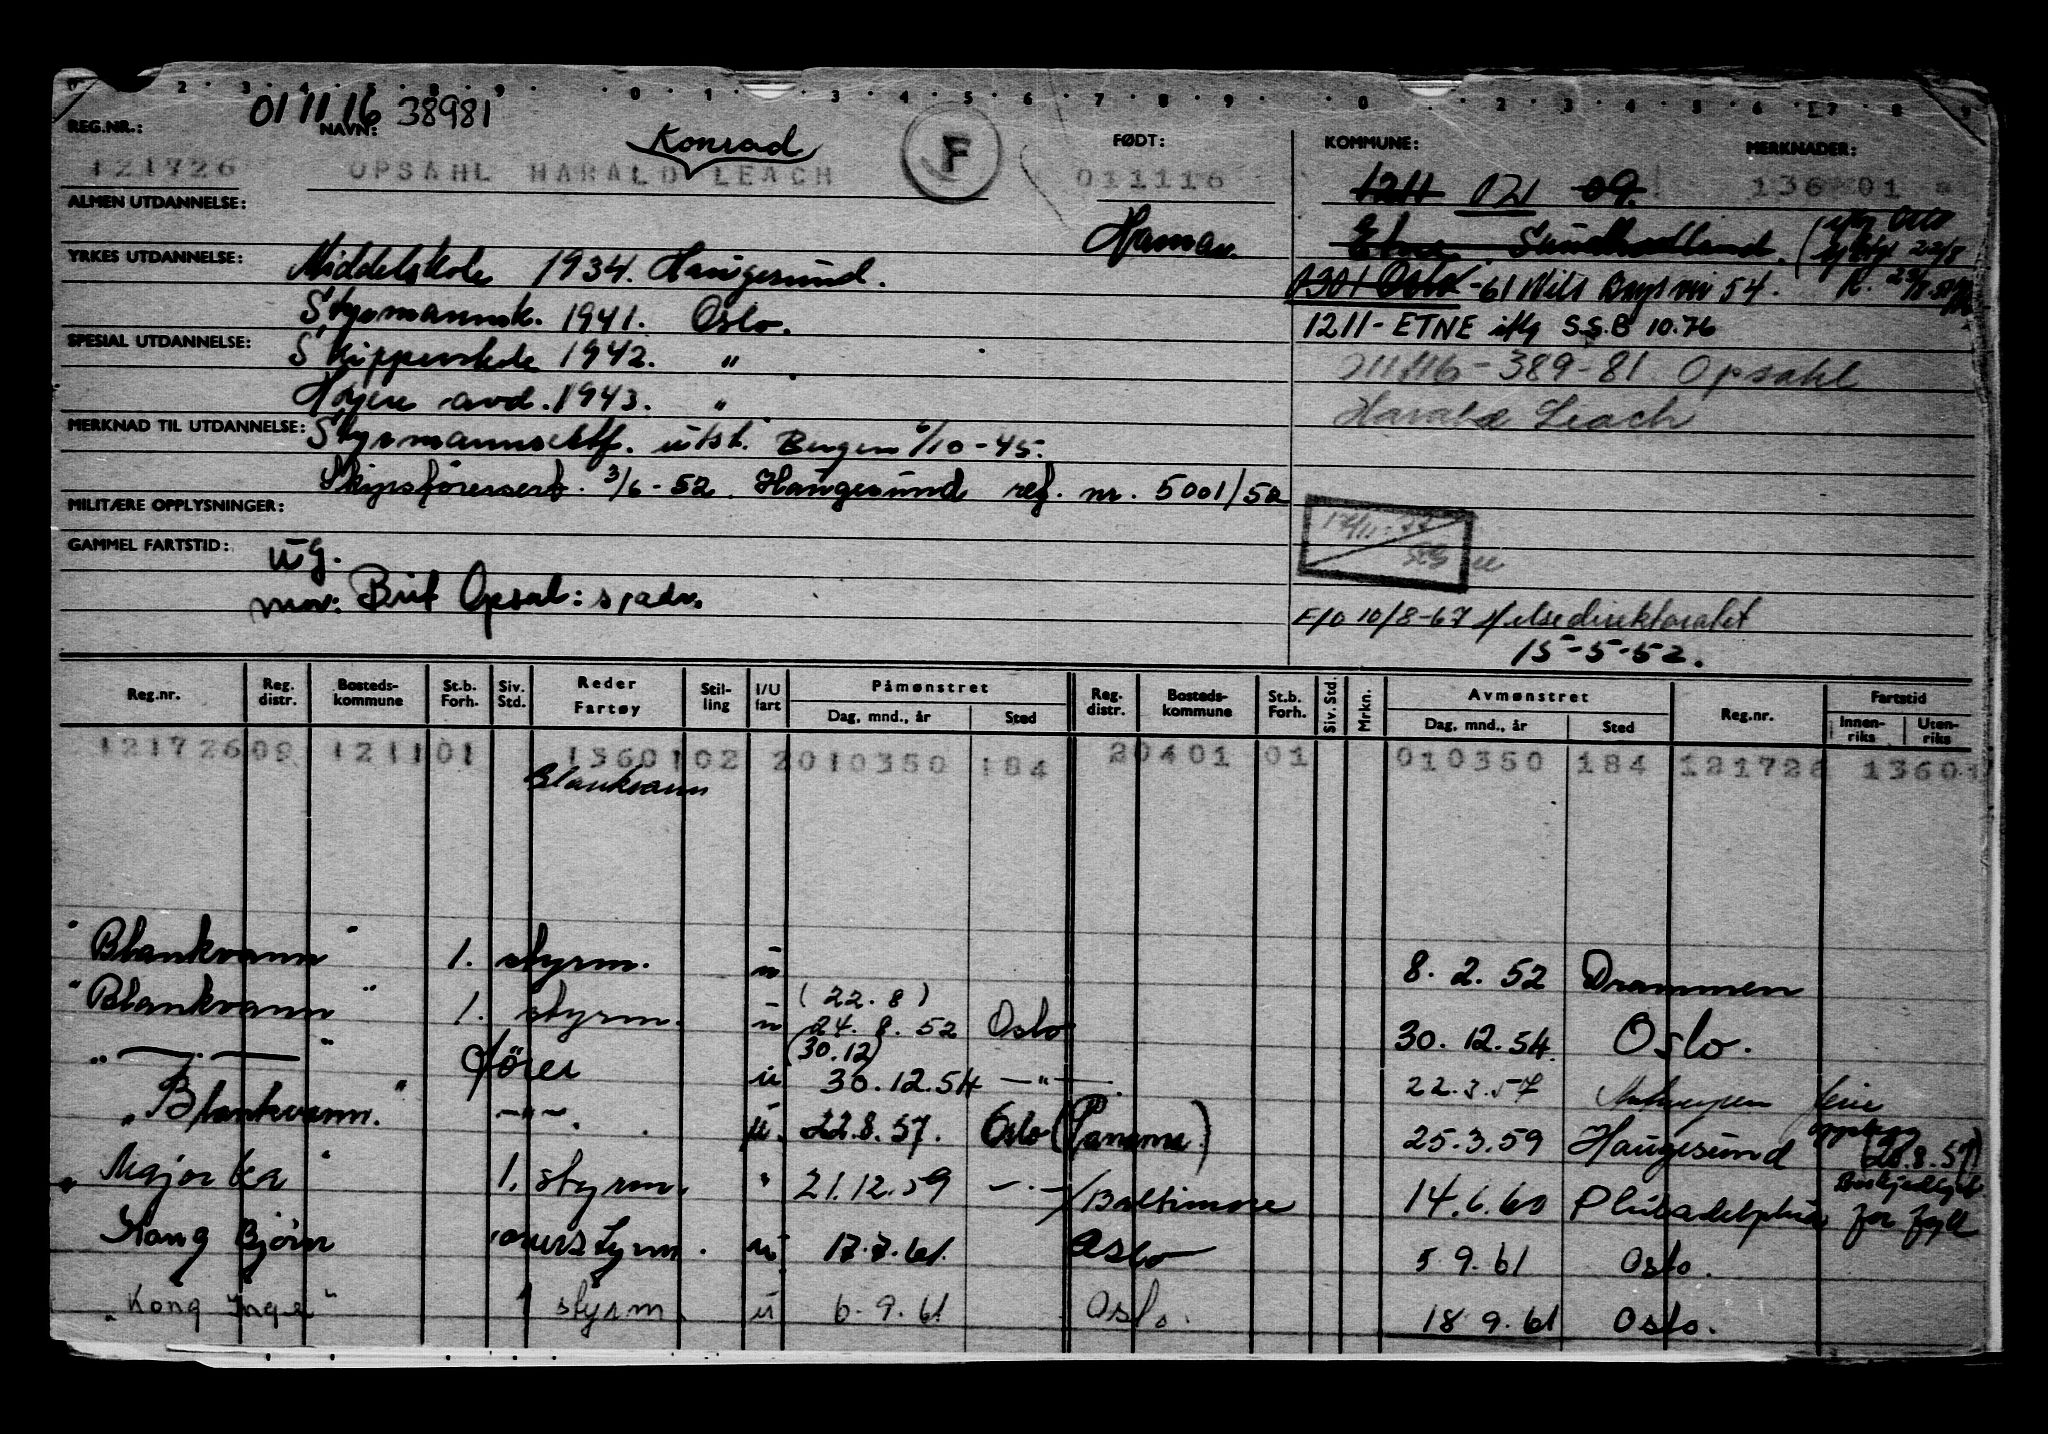 01 11 16 38981
REG.NR.: NAVN: Konrad F FØDT: KOMMUNE: MERKNADER:
121726 OPSAHL HARALD LEACH 011116 1211 09. 136 01
ALMEN UTDANNELSE: Etne
YRKES UTDANNELSE: Middelskole 1934. Haugesund. 0301 Oslo -61 Nils 54.
Styrmannsk. 1941. Oslo. 1211- ETNE iflg S.S.B 10.76
SPESIAL UTDANNELSE: Skipperskole 1942. " 011116-389-81 Opsahl
Høyere avd. 1943. " Harald Leach
MERKNAD TIL UTDANNELSE: utst. Bergen 6/10-45.
3/6-52. Haugesund ref. nr. 5001/52
MILITÆRE OPPLYSNINGER:
GAMMEL FARTSTID: ug.
Opsal: E/O 10/8-67 Helsedirektoratet
15-5-52.
Reg.nr. Reg. distr. Bosteds-kommune St.b. Forh. Siv. Std. Reder Fartøy Stil-ling I/U fart Påmønstret Dag, mnd., år Sted Reg. distr. Bosteds-kommune St.b. Forh. Siv. Std. Mrkn. Avmønstret Dag, mnd., år Sted Reg.nr. Fartstid Innen-riks Uten-riks
121726 09 1211 01 1360102 2 010350 184 20401 01 010350 184 121726 13601
Blankvann
"Blankvann" 1. styrm. u 8. 2. 52 Drammen
"Blankvann" 1. styrm. u (22. 8) 24. 8. 52 Oslo 30. 12. 54. Oslo.
" — " fører u (30.12) 30. 12. 54 —"— 22.3.57 Antwerpen
"Blankvann." —"—. u. 22.8.57. Oslo (Panama) 25.3.59 Haugesund (20.8.57)
"Majorka" 1. styrm. " 21.12.59 —.—/Baltimore 14.6.60 Philadelphia
Kong Bjørn overstyrm. u 17.7.61. Oslo 5 9. 61 Oslo.
"Kong Inge" 1 styrm. u 6. 9. 61 Oslo. 18 9. 61 Oslo.